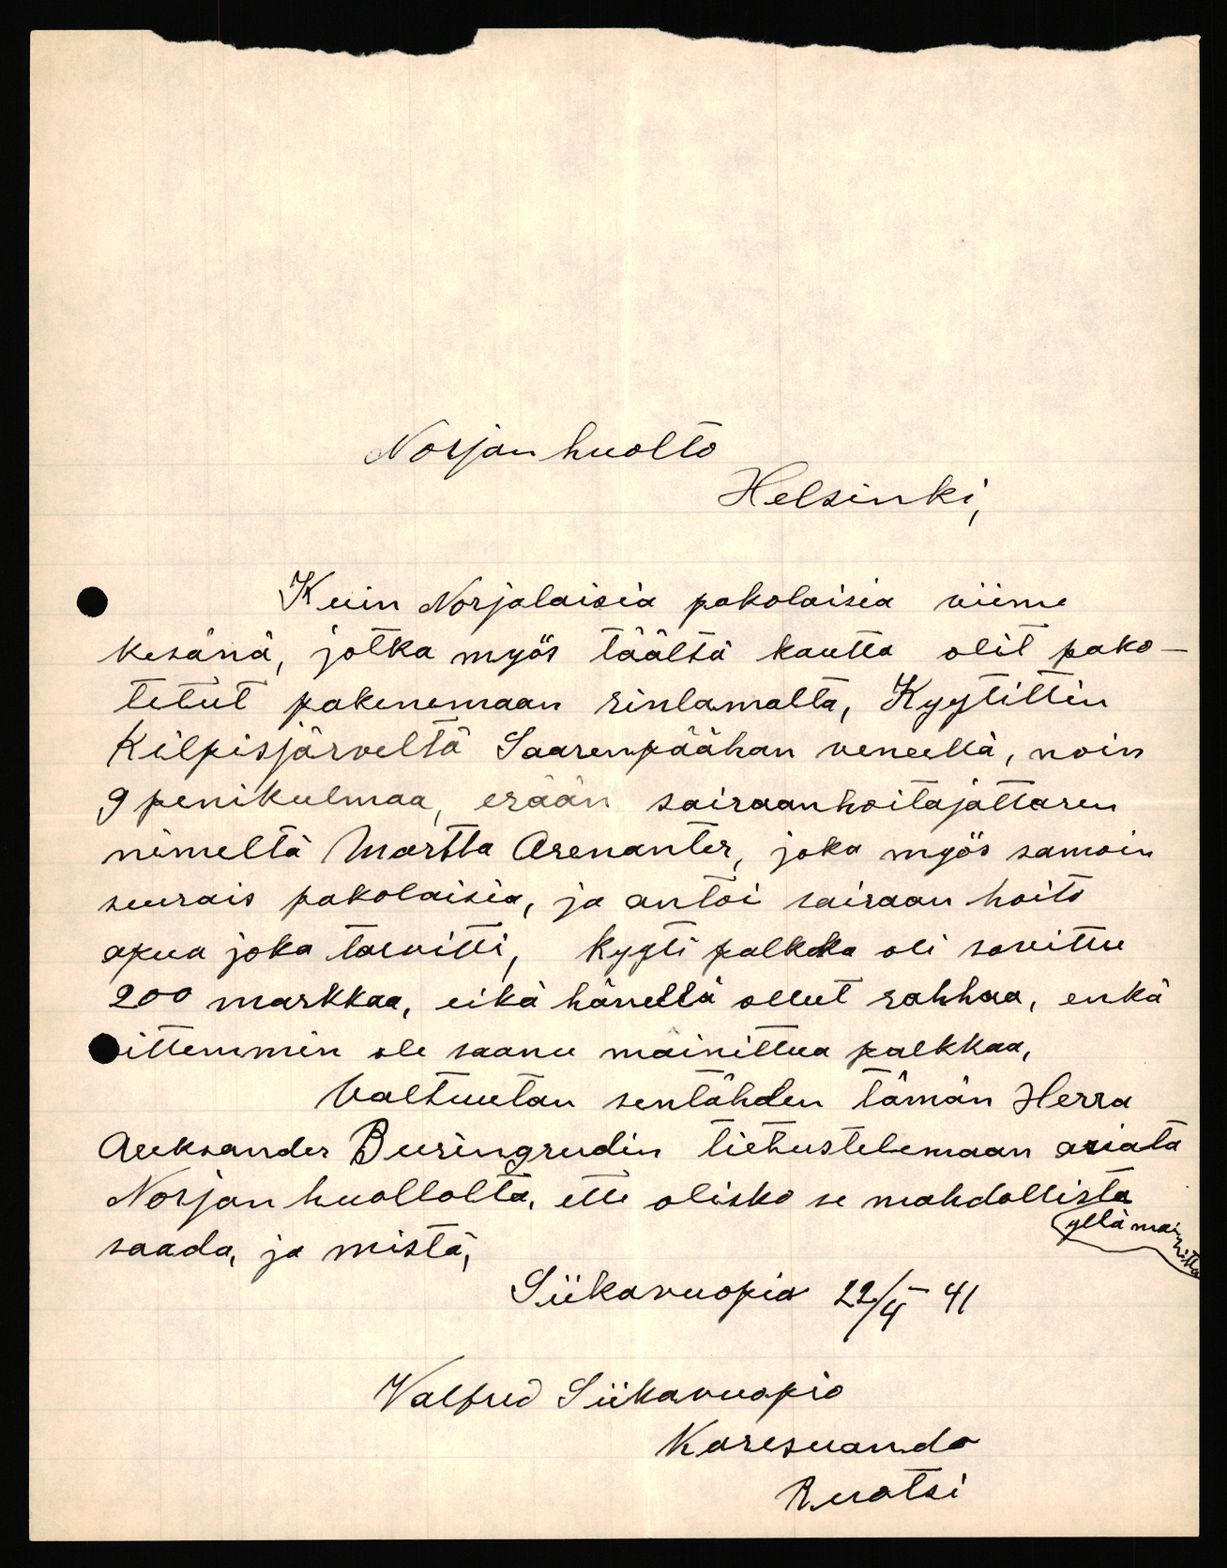 Norjan huolto
Helsinki,
Kuin Norjalaisia pakolaisia viime
kesänä, jotka myös täältä kautta olit pako-
tetut pakenemaan rintamalta, Kyytittin
Kilpisjärveltä Saarenpäähan veneellä, noin
9 penikulmaa, erään sairaanhoitajattaren
nimeltä Martta Arenanter, joka myös samoin
seurais pakolaisia, ja antoi sairaan hoito
apua joka tarvitti, kyyti palkka oli sovittu
200 markkaa, eikä hänellä ollut rahhaa, enkä
sittemmin ole saanu mainittua palkkaa,
Valtuutan sentähden tämän Herra
Aleksander Buringrudin tiehustelemaan asiata
Norjan huollolta, ette olisko se mahdollista
yllä mainitta
saada, ja mistä,
Siikavuopio 22/4 - 41
Valfrid Siikavuopio
Karesuando
Ruotsi